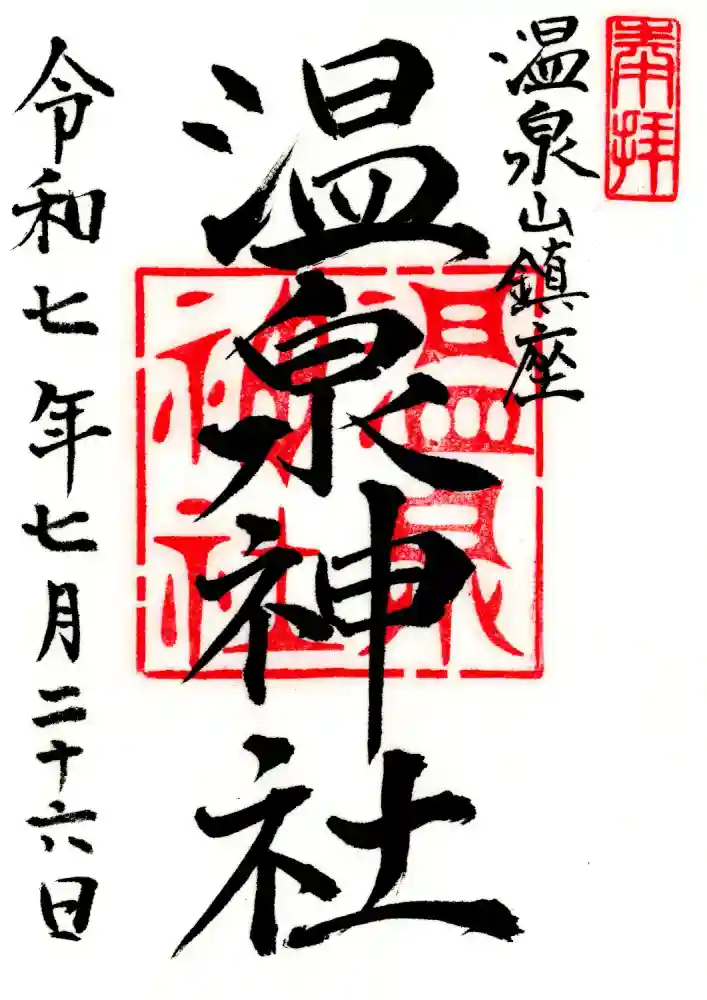 奉拝
温泉山鎮座
温泉神社
温泉
神社
令和七年七月二十六日